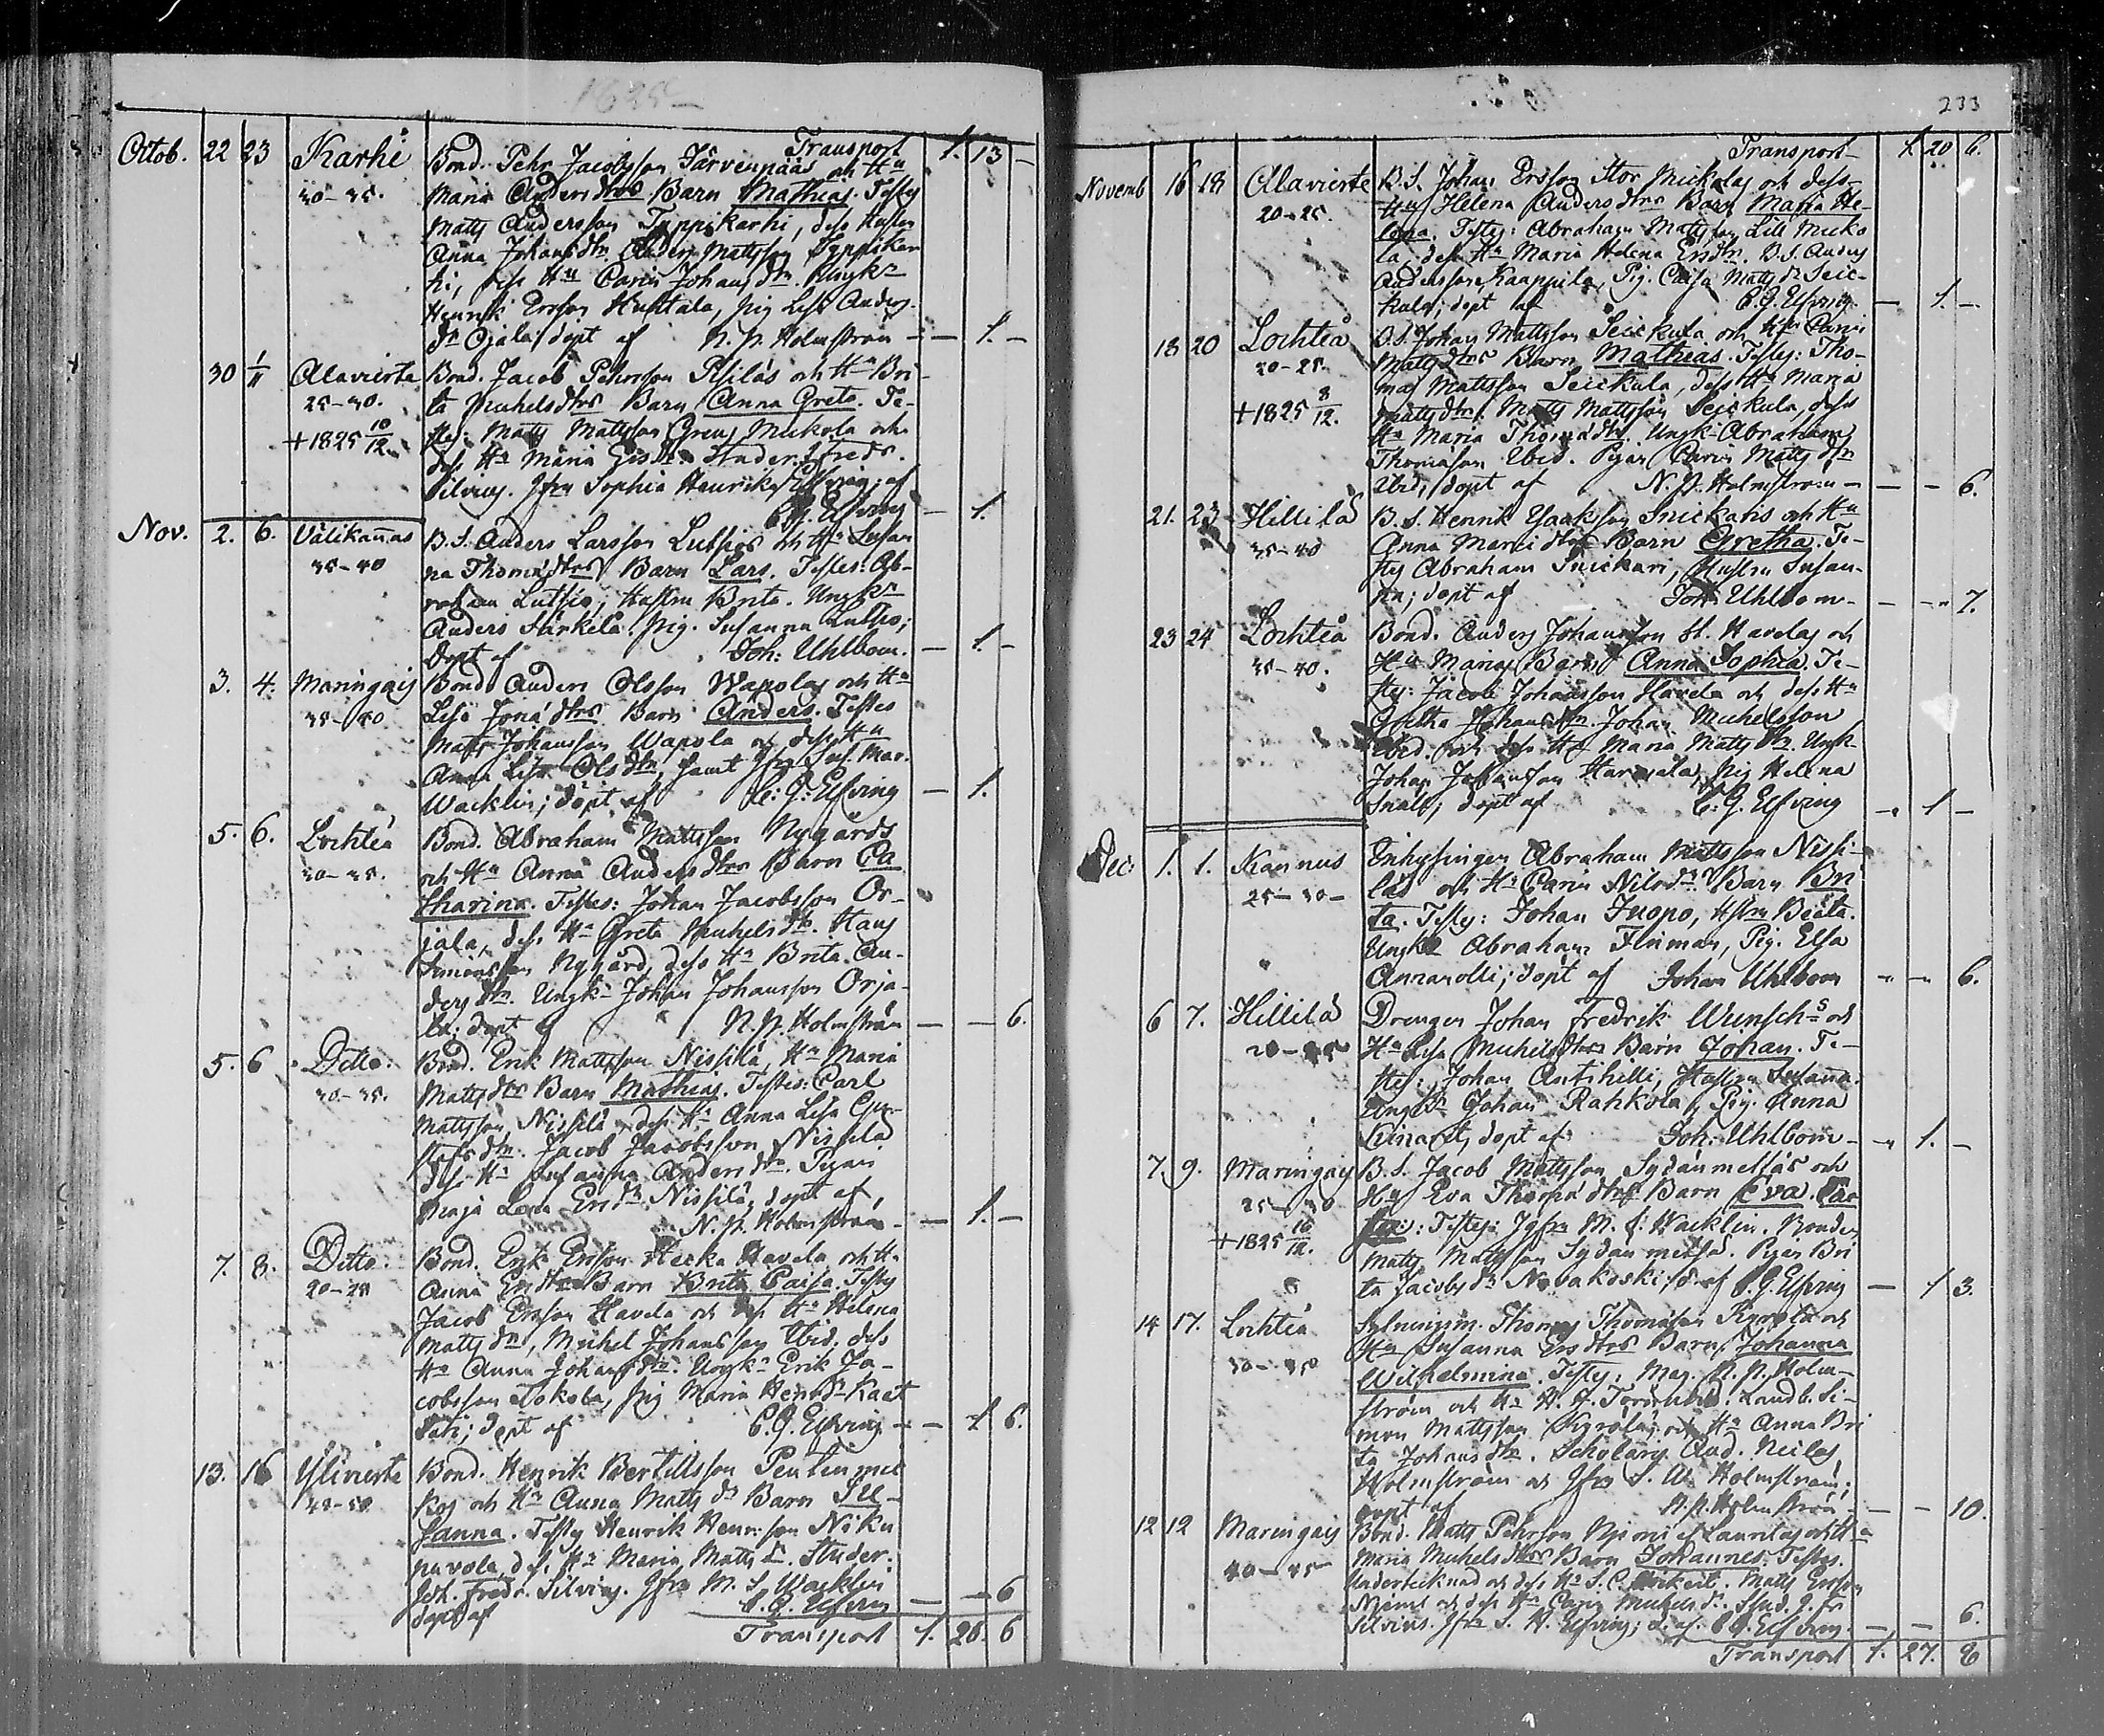 1825
Transport 1. 13 –
Octob. 22 23 Karhi Bond. Pehr Jacobsson Järvenpääs och Hu
30–35. Maria Anders dtrs Barn Mathias. Testes
Matts Andersson Typpikarhi, dess Hustru
Anna Johans dtr. Anders Mattsson Typpikar
hi, dess Hu Carin Johans dtr. Ungkn
Henrik Ersson Huktala, Pig Lisa Anders
dr Ojala, döpt af N. N. Holmström – – 1. –
30 1/11 Alavierte Bond. Jacob Pehrsson Pisiläs och Hu Bri
25–30. ta Michelsdtrs Barn Anna Greta. Te-
+1825 10/12. stes: Matts Mattsson Greus Mickola och
dess Hu Maria Ersdtr. Studer. Fredr.
Silvius. Jfru Sophia Henrika Elfving; af
C. G. Elfving – 1.
Nov. 2. 6. Välikannas B. S. Anders Larsson Lutsjos och Hu Susan
35–40 na Thomæ dtrs Barn Lars. Testes: Ab-
raham Lutsjo, Hustru Brita. Ungkn
Anders Särkelä. Pig. Susanna Lutsjo;
Döpt af Joh: Uhlbom. – 1. –
3. 4. Maringais Bond. Anders Olsson Wapolas och Hu
35–40 Lisa Jona dtrs Barn Anders. Testes
Matts Johansson Wapola och dess Hu
Anna Lisa Ols dtr, samt Jfru Sus. Mar.
Wacklin; döpt af C: G: Elfving – 1.
5. 6. Lochteå Bond. Abraham Mattsson Nygårds
30–35. och Hu Anna Anders dtrs Barn Ca
tharina. Testes: Johan Jacobsson Or-
jala, dess Hu Greta Michels dtr. Hans
Simonsson Nygård, dess Hu Brita An-
ders dtr. Ungkn Johan Johansson Orja-
la: döpt af N. N. Holmström – – 6.
5. 6 Ditto. Bond. Erik Mattsson Nissilä, Hu Maria
30–35. Matts dtrs Barn Mathias. Testes: Carl
Mattsson Nissilä, dess Hu Anna Lisa Gu-
stafs dtr. Jacob Jacobsson Nissilä
dess Hu Susanna Anders dtr. Pigan
Maja Lena Ers dr Nissilä, döpt af,
N. N. Holmström – – 1. –
7. 8. Ditto: Bond. Erik Ersson Hecka Havela och Hu
20–25 Anna Ersdtrs Barn Brita Caisa. Testes
Jacob Ersson Havela och dess Hu Helena
Matts dtr, Michel Johansson Ibid. dess
Hu Anna Johans dtr. Ungkn Erik Ja-
cobsson Tokola, Pig Maria Henrs dr Kaat
tari; döpt af C. G. Elfving – – 1 6.
13. 16 Ylivierte Bond. Henrik Bertillsson Pentinmic
kos och Hu Anna Matts dr Barn Su-
sanna. Testes Henrik Henricsson Niku
navola, dess Hu Maria Matts dr. Studer.
Joh. Fredr. Silvius. Jfru M. S. Wacklin
döpt af C. G. Elfving – – 6
Transport 1. 20. 6
233
Transport 1. 20 6.
Novemb 16 18 Alavierte B. S. Johan Ersson Stor Mickolas och dess
20–25. Hu Helena Anders dtrs Barn Maria He-
lena. Testes: Abraham Mattsson Lill Micko
la, dess Hu Maria Helena Ersdtr. B. S. Anders
Andersson Kaappila, Pig. Caisa Matts dr Seic-
kula; döpt af C. G. Elfving. – 1. –
18 20 Lochteå B. S. Johan Mattsson Seickula och Hu Carin
20–25. Matts dtrs Barn Mathias. Testes: Tho-
+1825 8/12. mas Mattsson Seickula, dess Hu Maria
Matts dtr. Matts Mattsson Seickula, dess
Hu Maria Thomæ dtr. Ungk. Abraham
Thomasson Ibid. Pigan Carin Matts dtr
Ibid; döpt af N. N. Holmström – – – 6.
21. 23 Hillilä B. S. Henrik Isaksson Snickaris och Hu
35–40 Anna Marci dtrs Barn Gretha. Te-
stes Abraham Snickari, Hustru Susan-
na; döpt af Joh: Uhlbom – – – 7.
23 24 Lochteå Bond. Anders Johansson St. Havelas och
35–40. Hu Marias Barn Anna Sophia. Te-
stes: Jacob Johansson Havela och dess Hu
Gretha Johans dtr. Johan Michelsson
Ibid. och dess Hu Maria Matts dtr. Ungk.
Johan Johansson Harjala, Pig Helena
Snåll; döpt af C: G. Elfving – 1 –
Dec: 1. 1. Kannus Inhysingen Abraham Mattsson Nissi-
25–30– läs och Hu Carin Nilsdrs Barn Bri
ta. Testes: Johan Juopo, Hstru Beata.
Ungkn Abraham Flinman, Pig. Elsa
Annanolli; döpt af Johan Uhlbom – – 6.
6 7. Hillilä Drengen Johan Fredrik Wunschs och
20–25 Hu Lisa Michelsdtrs Barn Johan. Te-
stes: Johan Anttihilli, Hustru Susanna.
Ungkn Johan Rahkola, Pig. Anna
döpt af Joh: Uhlbom – – 1. –
7. 9. Maringais B. S. Jacob Mattsson Sydänmetsäs och
25–30 Hu Eva Thomæ dtrs Barn Eva
+1825 10/12. Testes: Jgfru M. S: Wacklin. Bonden
Matts Mattsson Sydänmetsä. Pigan Bri
ta Jacobs dr Niskakoski; d. af C. G. Elfving – 1 3.
14 17. Lochteå Thomas Thomasson Kyrolä och
30–35 Hu Susanna Ersdtrs Barn Johanna
Wilhelmina. Testes: Mag. N. N. Holm-
ström och Hu H. J. Landb. Si-
mon Mattsson Kyrölä, och Hu Anna Bri
ta Johans dtr. Scholaris And. Niclas
Holmström och Jfru S. W. Holmström;
döpt af N. N. Holmström – – – 10.
12 12 Maringais Bond. Matts Pehrsson och Hu
40–45 Maria Michels dtrs Barn Johannes. Testes.
Undertecknad och dess Hu S. C. Matts Ersson
och dess Hu Carin Michels dr. Stud. J. Fr
Silvius. Jfru S. H. Elfving; d. af. C G. Elfving. – – 6.
Transport 1. 27. 8